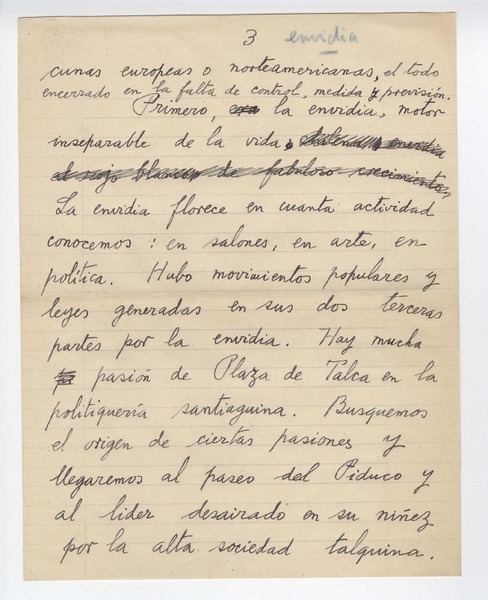 3 envidia
cunas europeas o norteamericanas, el todo
encerrado en la falta de control, medida y previsión.
Primero, era la envidia, motor
inseparable de la vida. envidia
el rojo blanco de fabuloso crecimiento
La envidia florece en cuanta actividad
conocemos: en salones, en arte, en
política. Hubo movimientos populares y
leyes generadas en sus dos terceras
partes por la envidia. Hay mucha
pasión de Plaza de Talca en la
politiquería santiaguina. Busquemos
el origen de ciertas pasiones y
llegaremos al paseo del Piduco y
al lider desairado en su niñez
por la alta sociedad talquina.